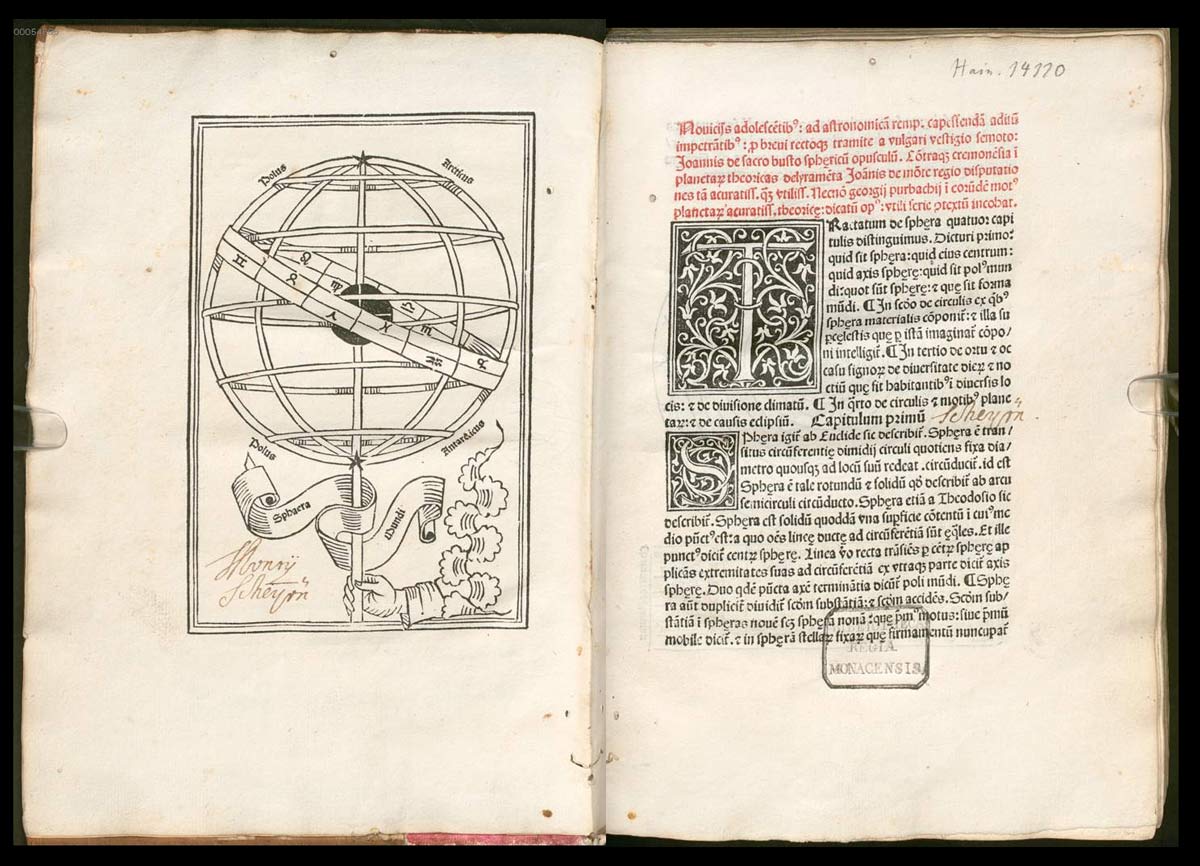 Polus
Arcticus
Polus
Antarcticus
Sphaera
Mundi
Monrij
Scheyrn
Hain. 14110
Nouicijs adolescētibꝰ: ad astronomicā remp. capessendā aditū
impetrātibꝰ: ꝓ breui rectoqꝫ tramite a vulgari vestigio semoto:
Joannis de sacro busto sphęricū opusculū. Cōtraqꝫ cremonēsia ī
planetaꝝ theoricas delyramēta Joānis de mōte regio disputatio
nes tā acuratiss. qꝫ̄ vtiliss. Necnō georgij purbachij ī eorūdē motꝰ
planetaꝝ acuratiss. theoricę: dicatū opꝰ: vtili serie ↄtextū incohat.
TRactatum de sphęra quatuor capi
tulis distinguimus. Dicturi primo:
quid sit sphęra: quid eius centrum:
quid axis sphęrę: quid sit polꝰ mun
di: quot sūt sphęrę: ⁊ quę sit forma
mūdi. ¶ In scōo de circulis ex qⁱbꝰ
sphęra materialis cōponit᷑: ⁊ illa su
pcęlestis que ꝑ istā imaginat᷑ cōpo/
ni intelligit᷑. ¶ In tertio de ortu ⁊ oc
casu signoꝝ de diuersitate dieꝝ ⁊ no
ctiū quę sit habitantibꝰ ī diuersis lo
cis: ⁊ de diuisione climatū. ¶ In qͣrto de circulis ⁊ motibꝰ plane
taꝝ: ⁊ de causis eclipsiū. Capitulum primū Scheyrn
SPhęra igit᷑ ab Euclide sic describit᷑. Sphęra ē tran/
situs circūferentię dimidij circuli quotiens fixa dia/
metro quousqꝫ ad locū suū redeat .circūducit᷑. id est
Sphęra ē tale rotundū ⁊ solidū qd̄ describit᷑ ab arcu
semicirculi circūducto. Sphęra etiā a Theodosio sic
describit᷑. Sphęra est solidū quoddā vna supficie cōtentū ī cuiꝰ me
dio pūctꝰ est: a quo oēs lineę ductę ad circūferētiā sūt ęqles. Et ille
punctꝰ dicit᷑ centꝝ sphęrę. Linea vo recta trāsiēs ꝑ cētꝝ sphęrę ap
plicās extremitates suas ad circūferētiā ex vtraqꝫ parte dicit᷑ axis
sphęrę. Duo qdē pūcta axē terminātia dicūt᷑ poli mūdi. ¶ Sphę
ra aūt duplicit᷑ diuidit᷑ scōm substātiā: ⁊ scōm accidēs. Scōm sub/
stātiā ī sphęras nouē scꝫ sphęrā nonā: quę pmꝰ motus: siue pmū
mobile dicit᷑. ⁊ in sphęrā stellaꝝ fixaꝝ quę firmamentū nuncupat᷑
REGIA
MONACENSIS.